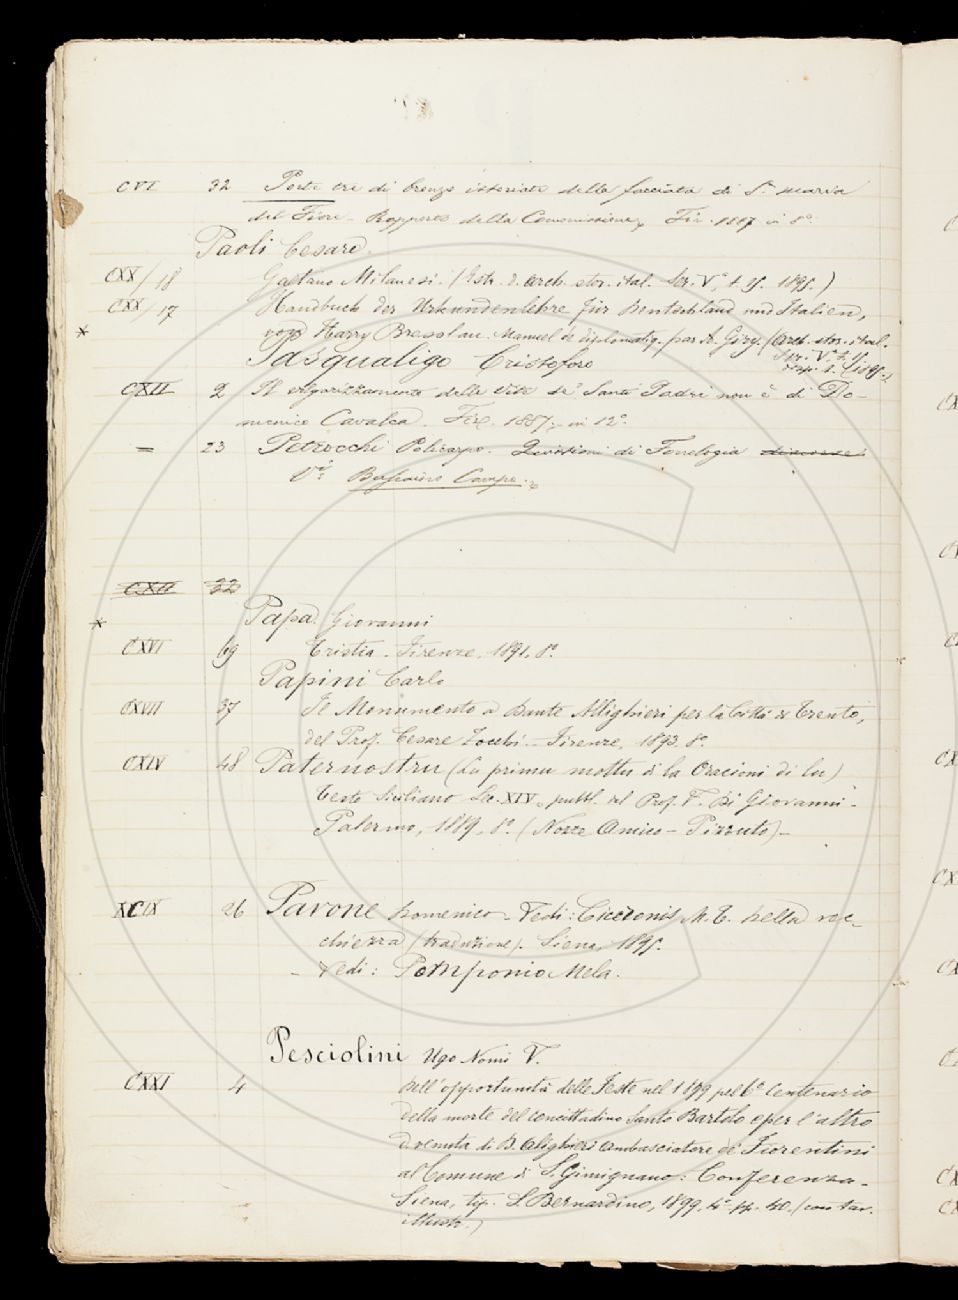 CVI 32 Porte tre di bronzo istoriate della facciata di S. Maria
del Fiore - Rapporto della Commissione, Fir. 1887 in 8°
Paoli Cesare.
CXX/18 Gaetano Milanesi. (Estr. d. Arch. stor. ital. Ser. V, t. 1895.)
CXX/17 Handbuch der Urkundenlehre für Deutschland und Italien,
* von Harry Bresslau. Manuel de diplomatiq. par A. Giry. (Arch. stor. ital.
Ser. V. t.
disp. 1895.)
Pasqualigo Cristoforo
CXII 2 Il volgarizzamento delle vite de' Santi Padri non è di Do-
menico Cavalca. Fir. 1887, in 12°
= 23 Petrocchi Policarpo. Questioni di Fonologia discorse
V.i Campo.
CXII 22
Papa Giovanni
*
CXVI 69 Cristia. Firenze, 1891, 8°.
Papini Carlo
CXVII 37 Il Monumento a Dante Allighieri per la Città di Trento,
del Prof. Cesare Zocchi - Firenze, 1893. 8°.
CXIV 48 Paternostru (Lu primu mottu di la Oracioni di lu)
Testo Siciliano Sec. XIV, pubbl. dal Prof. V. Di Giovanni -
Palermo, 1889, 8°. (Nozze Amico - Pizzuto) -
XCIX 26 Pavone Domenico - Vedi: Ciceronis M. T. Della vec-
chiezza (traduzione). Siena, 1895.
- Vedi: Pomponio Mela.
Pesciolini Ugo Nomi V.
CXXI 4 Dell'opportunità delle Feste nel 1899 pel 6° Centenario
della morte del concittadino Santo Bartolo e per l'altro
d. venuta di D. Alighieri ambasciatore de' Fiorentini
al Comune di S. Gimignano: Conferenza -
Siena, tip. S. Bernardino, 1899, 4° pp. 40. (con tav.
illustr.)